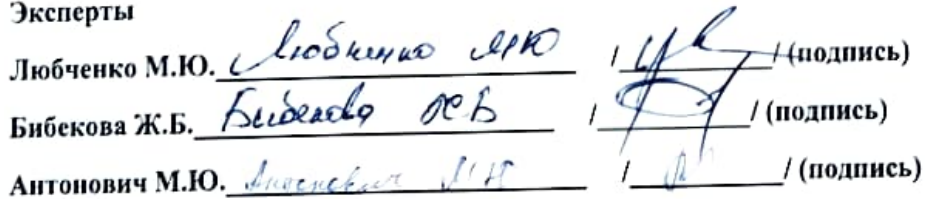 Эксперты
Любченко М.Ю. Любченко МЮ / / (подпись)
Бибекова Ж.Б. Бибекова ЖБ / / (подпись)
Антонович М.Ю. Антонович М Ю / / (подпись)